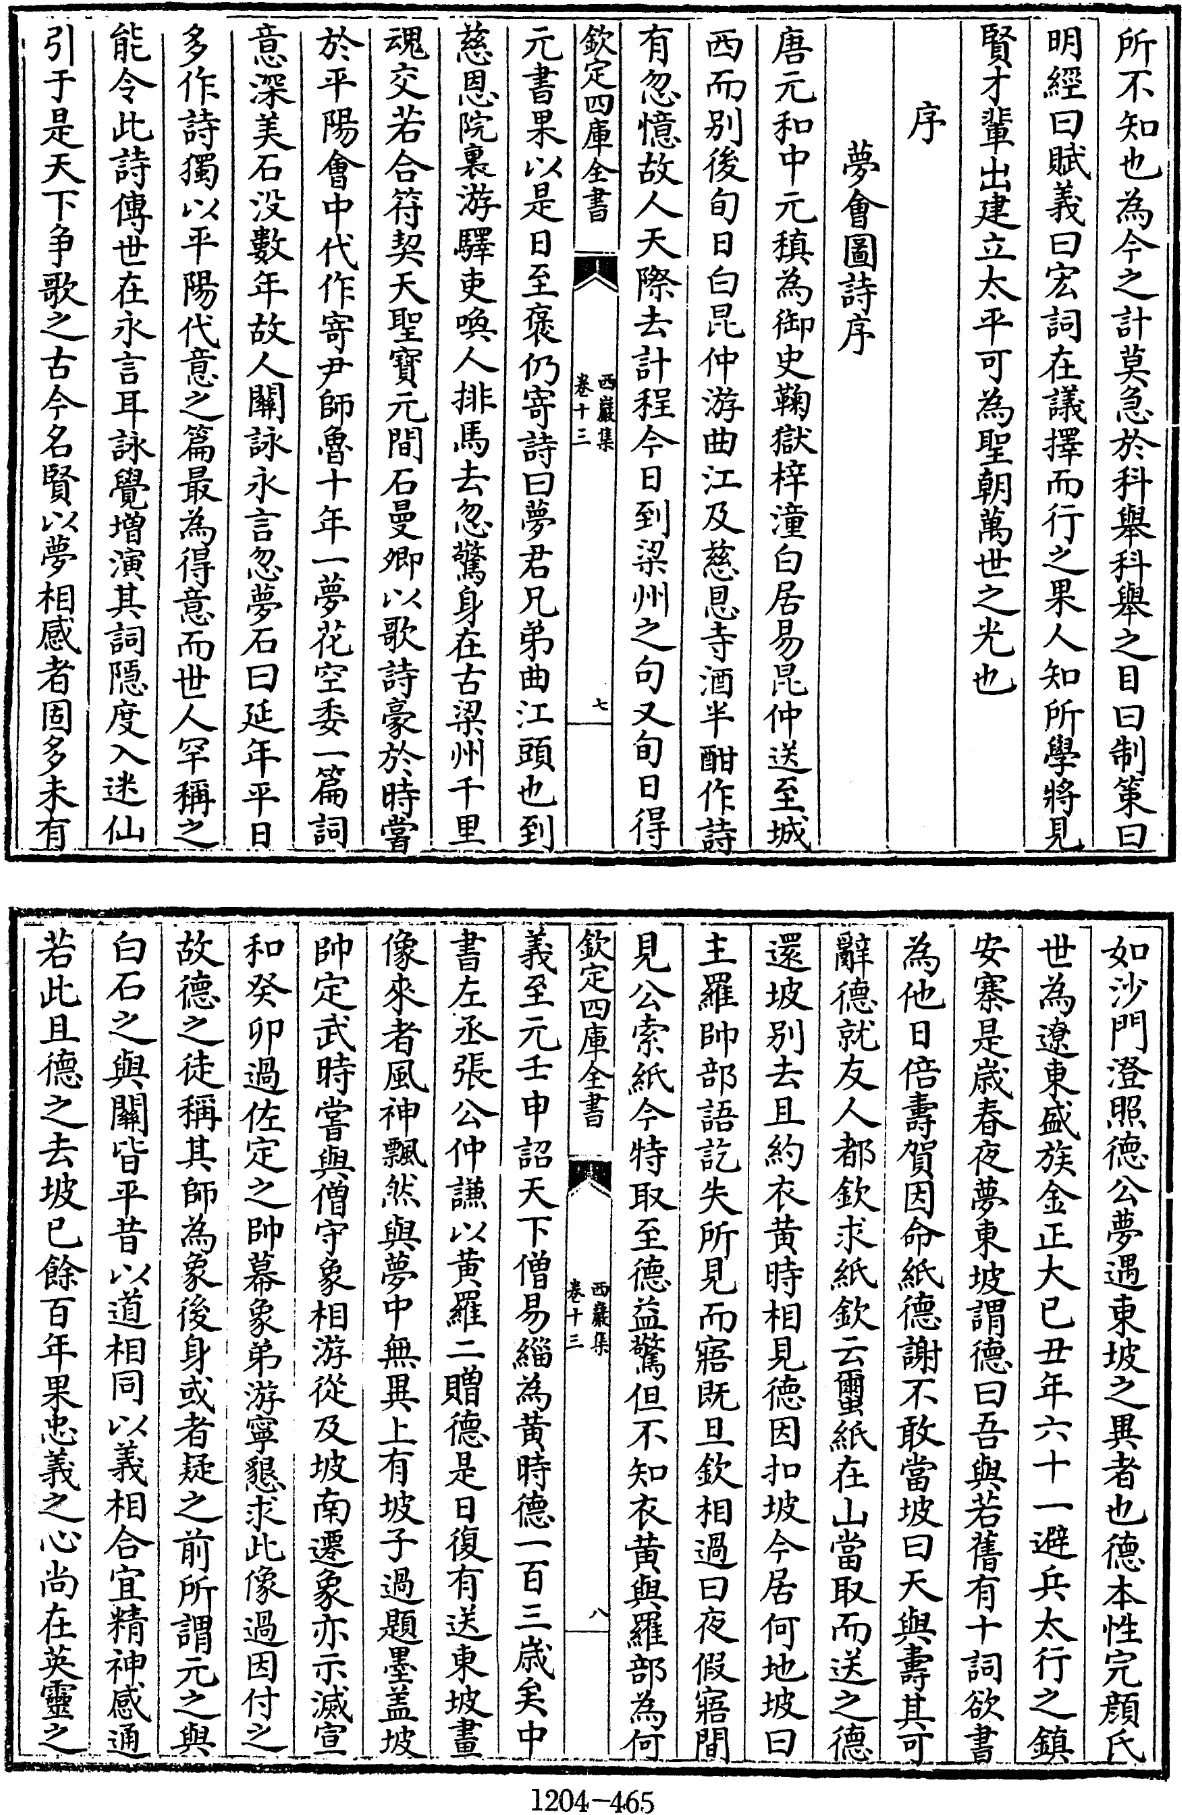 所不知也為今之計莫急於科舉科舉之目曰制策曰
明經曰賦義曰宏詞在議擇而行之果人知所學將見
賢才輩出建立太平可為聖朝萬世之光也
序
夢會圖詩序
唐元和中元稹為御史鞠獄梓潼白居易昆仲送至城
西而别後旬日白昆仲游曲江及慈恩寺酒半酣作詩
有忽憶故人天際去計程今日到梁州之句又旬日得
欽定四庫全書
西巖集
卷十三
七
元書果以是日至褒仍寄詩曰夢君兄弟曲江頭也到
慈恩院裏游驛吏喚人排馬去忽驚身在古梁州千里
魂交若合符契天聖寶元間石曼卿以歌詩豪於時嘗
於平陽會中代作寄尹師魯十年一夢花空委一篇詞
意深美石没數年故人關詠永言忽夢石曰延年平日
多作詩獨以平陽代意之篇最為得意而世人罕稱之
能令此詩傳世在永言耳詠覺增演其詞隱度入迷仙
引于是天下争歌之古今名賢以夢相感者固多未有
如沙門澄照德公夢遇東坡之異者也德本性完顔氏
世為遼東盛族金正大已丑年六十一避兵太行之鎮
安寨是歲春夜夢東坡謂德曰吾與若舊有十詞欲書
為他日倍壽賀因命紙德謝不敢當坡曰天與壽其可
辭德就友人都欽求紙欽云蠒紙在山當取而送之德
還坡别去且約衣黄時相見德因扣坡今居何地坡曰
主羅帥部語訖失所見而寤既旦欽相過曰夜假寤間
見公索紙今特取至德益驚但不知衣黄與羅部為何
欽定四庫全書
西巖集
卷十三
八
義至元壬申詔天下僧易緇為黄時德一百三歲矣中
書左丞張公仲謙以黄羅二贈德是日復有送東坡畫
像來者風神飄然與夢中無異上有坡子過題墨盖坡
帥定武時嘗與僧守象相游從及坡南遷象亦示滅宣
和癸卯過佐定之帥幕象弟游寧懇求此像過因付之
故德之徒稱其師為象後身或者疑之前所謂元之與
白石之與關皆平昔以道相同以義相合宜精神感通
若此且德之去坡已餘百年果忠義之心尚在英靈之
1204-465